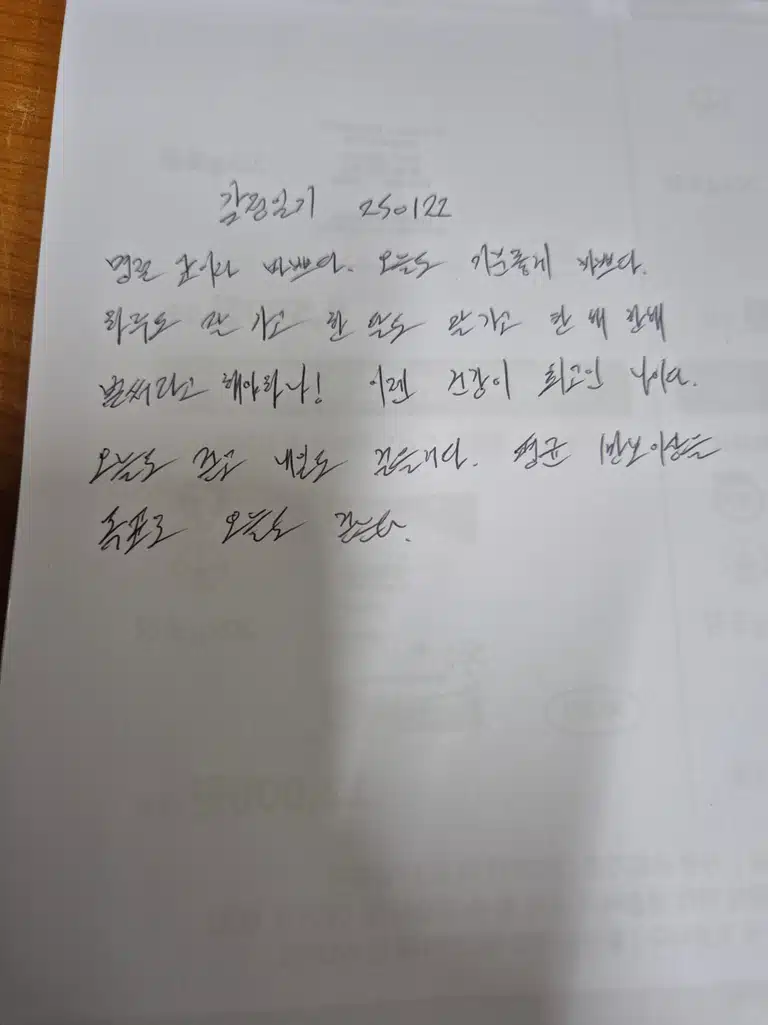 감정일기 250122
명절 코앞이라 바쁘다. 오늘도 기분좋게 바쁘다.
하루도 잘 가고 한 달도 잘 가고 한 해 한해
벌써라고 해야하나! 이젠 건강이 최고인 나이다.
오늘도 걷고 내일도 걸을거다. 평균 1만보이상을
목표로 오늘도 걷는다.